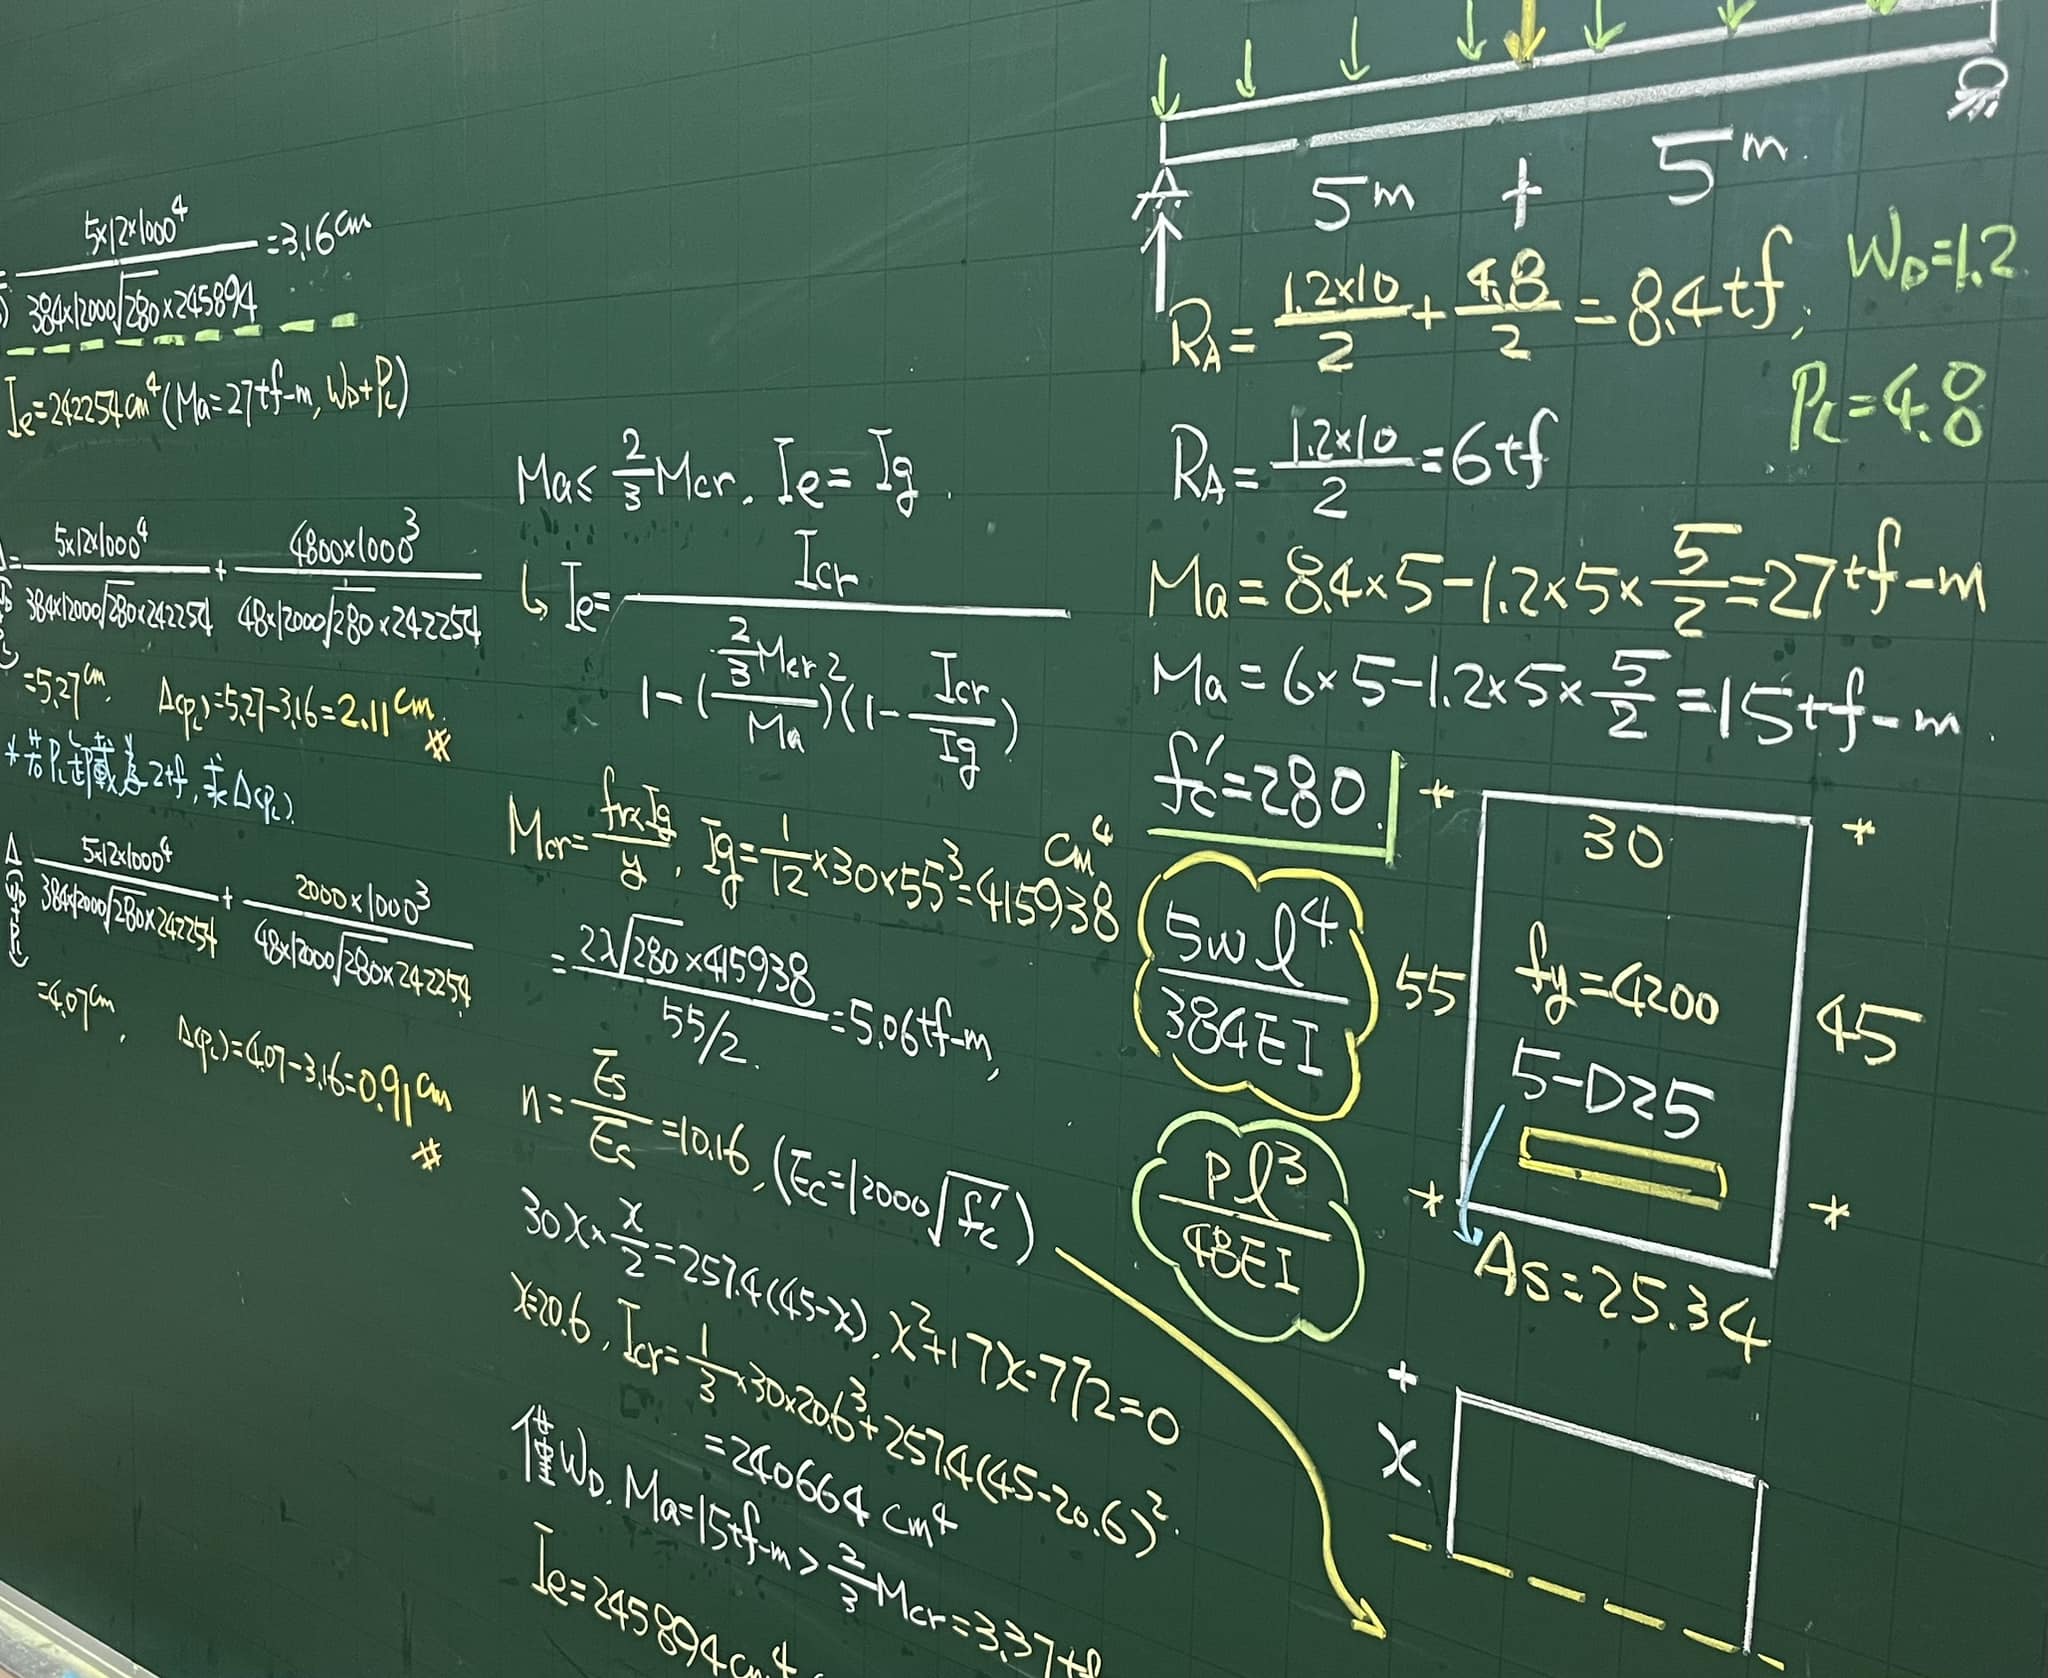 5×12×1000⁴ / 384×12000√280×245894 = 3.16 cm
Ie=242254cm⁴(Ma=27tf-m, WD+PL)
5×12×1000⁴ / 384×12000√280×242254 + 4800×1000³ / 48×12000√280×242254
=5.27cm, Δ(PL)=5.27-3.16=2.11cm #
*若PL卸載為2tf,求Δ(PL)
Δ(WD+PL) 5×12×1000⁴ / 384×12000√280×242254 + 2000×1000³ / 48×12000√280×242254
=4.07cm, Δ(PL)=4.07-3.16=0.91cm #
Ma≤2/3Mcr, Ie=Ig.
↳ Ie= Icr / 1-(2/3Mcr / Ma)²(1-Icr/Ig)
Mcr=fr×Ig / y, Ig=1/12×30×55³=415938 cm⁴
=2λ√280×415938 / 55/2 =5.06tf-m,
n=Es/Ec=10.16, (Ec=12000√fc')
30x×x/2=257.4(45-x), x²+17x-772=0
x=20.6, Icr=1/3×30×20.6³+257.4(45-20.6)²
=240664 cm⁴
僅WD, Ma=15tf-m>2/3Mcr=3.37tf
Ie=245894cm⁴
5m + 5m
WD=1.2
RA=1.2×10/2+4.8/2=8.4tf,
PL=4.8
RA=1.2×10/2=6tf
Ma=8.4×5-1.2×5×5/2=27tf-m
Ma=6×5-1.2×5×5/2=15tf-m
fc'=280
5wl⁴ / 384EI
Pl³ / 48EI
30
55
fy=4200
45
5-D25
As=25.34
x